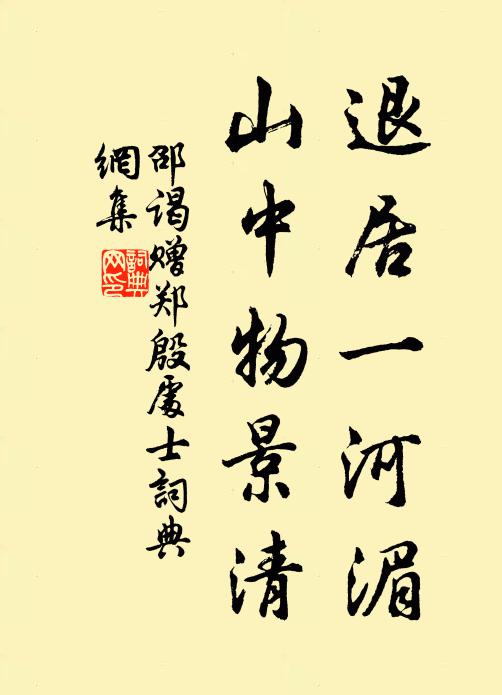 退居一河湄
山中物景清
邵谒赠郑殷處士詞典
網集
詞典
网印